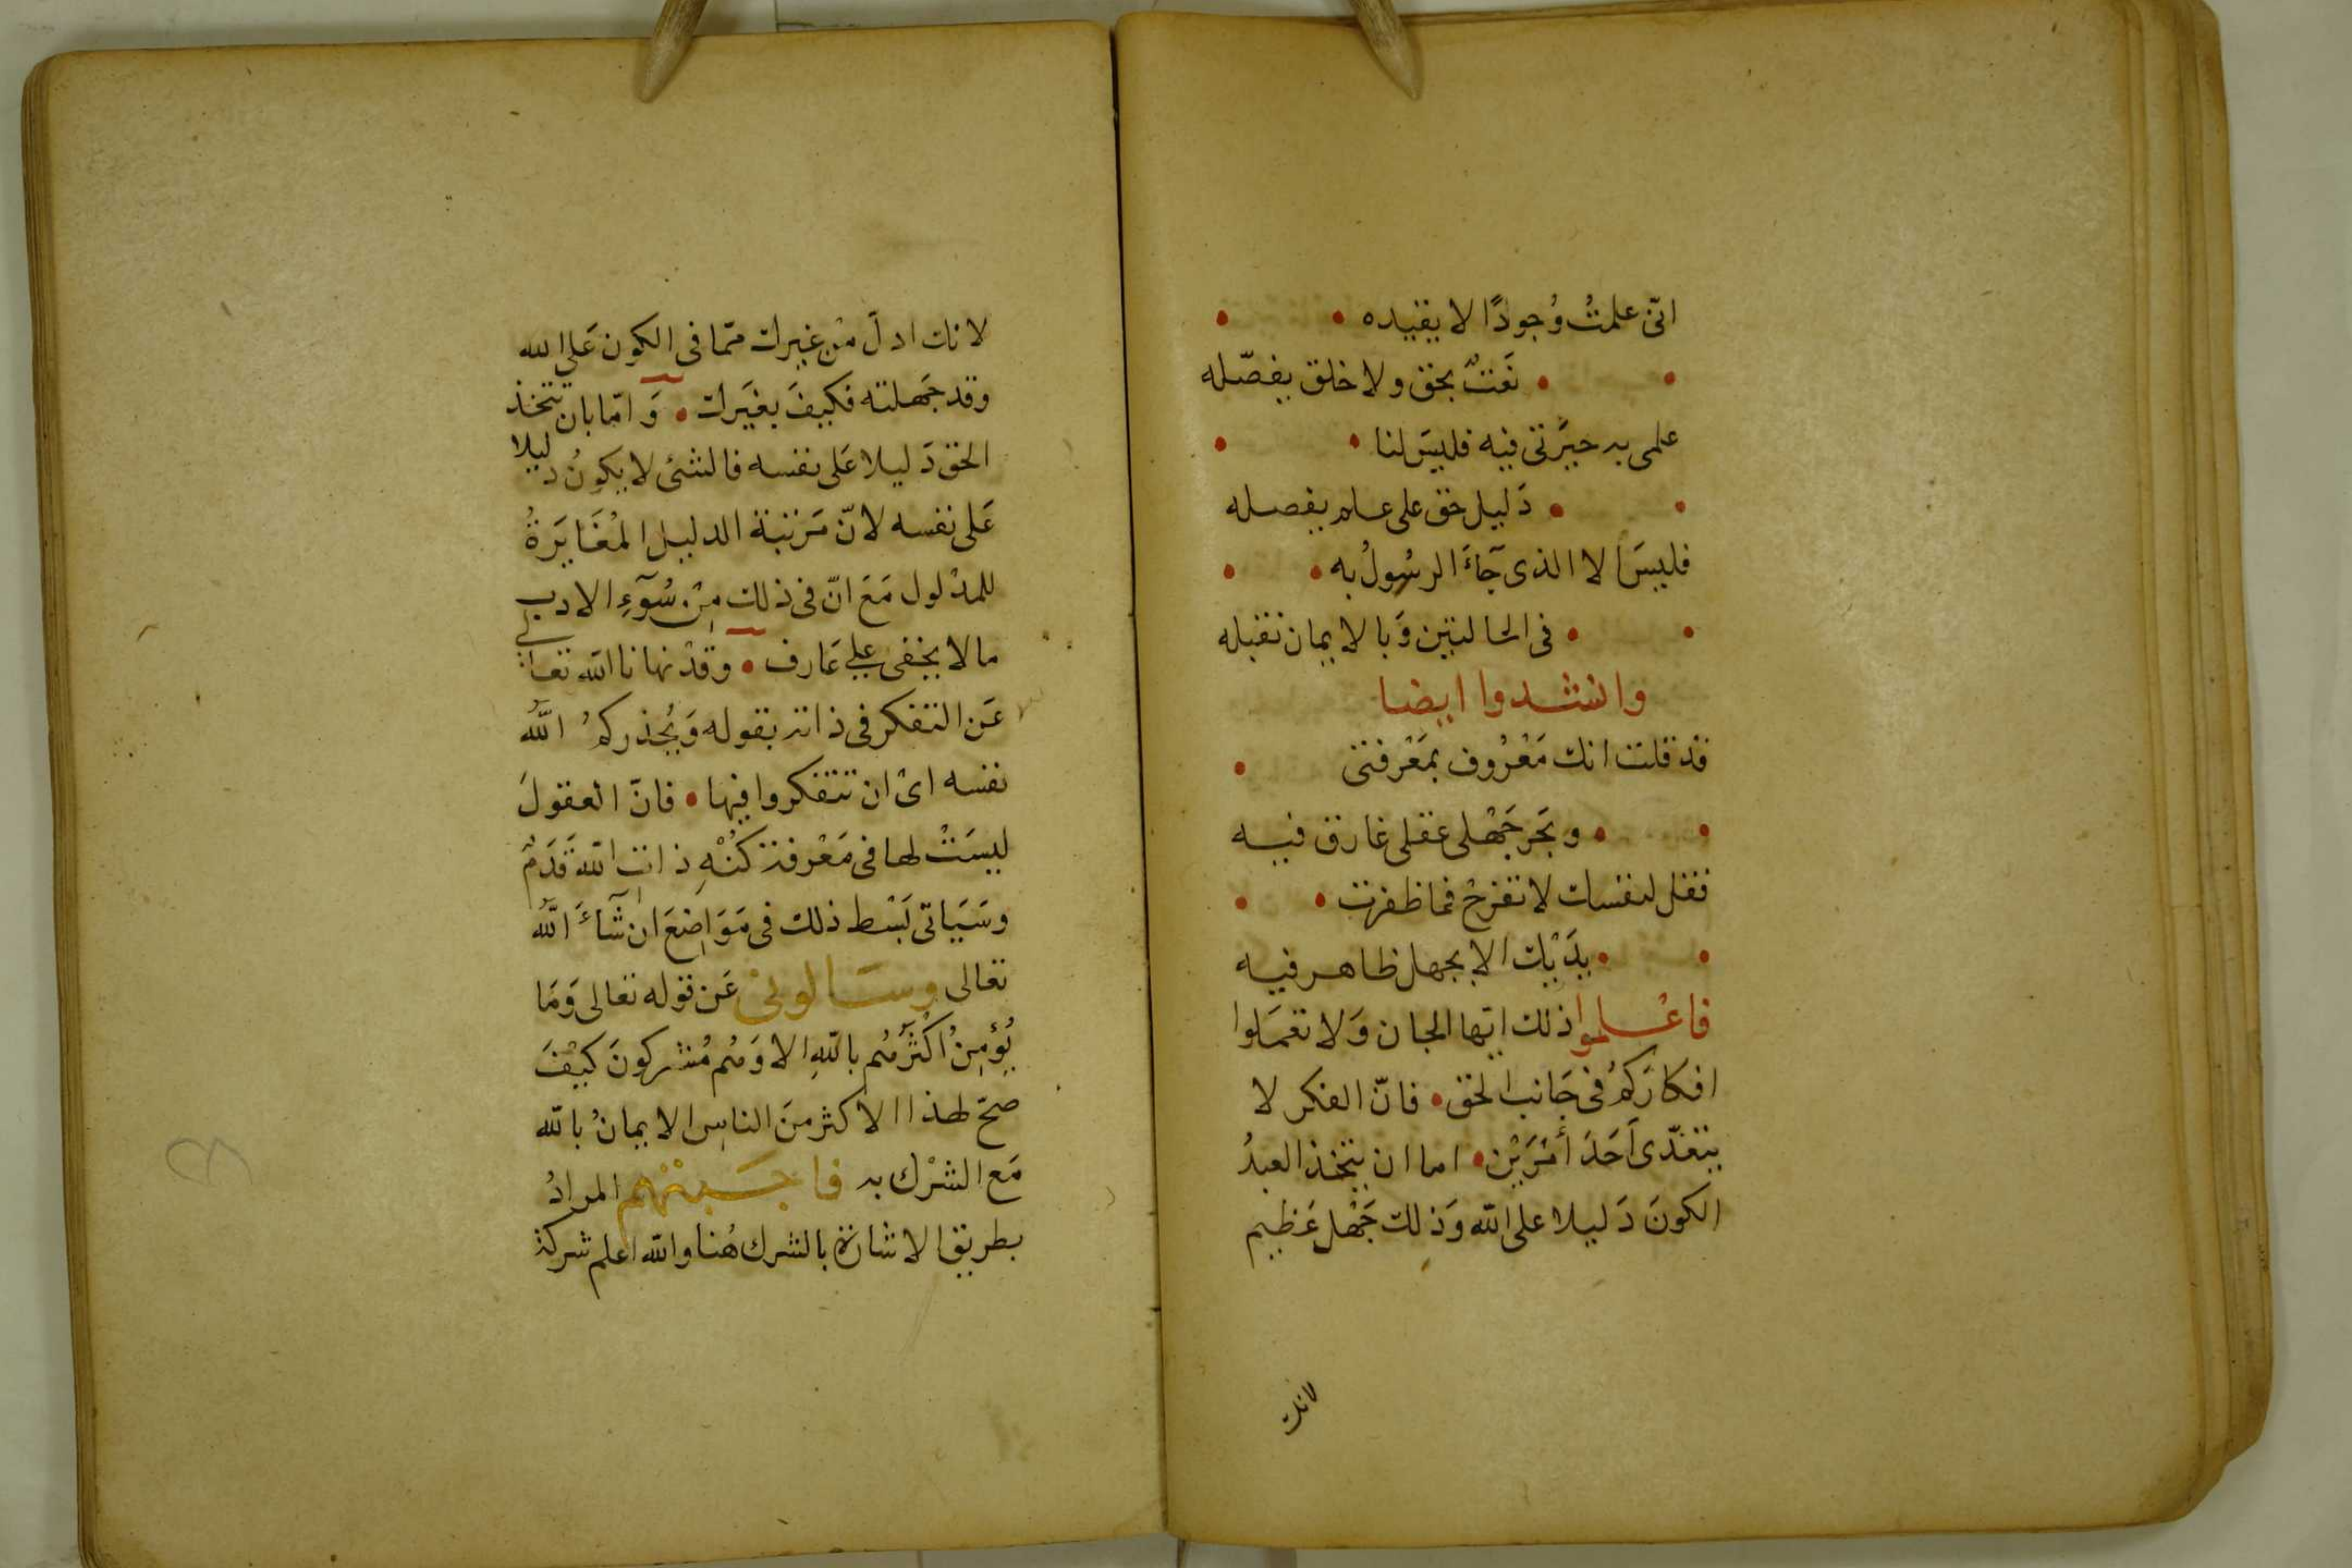 انّى علمتُ وُجودًا لا يقيده
نَعتٌ بحق ولا خلق يفصّله
علمى به حيّرتى فيه فليسَ لنا
دَليل حق على علم يفصله
فليسَ الا الذى جآءَ الرسُولُ به
فى الحالتين وَبالايمان نقبله
وانشدوا ايضا
قد قلت انك مَعْرُوف بمَعْرفتى
وبَحر جَهْلى عقلى غارق فيه
فقل لنفسك لا تفرحْ فما ظفرت
يدَيْك الا بجهل ظاهر فيه
فاعْلموا ذلك ايّها الجان وَلا تعمَلوا
افكارَكمُ فى جَانب الحق فانّ الفكر لا
يتعَدّى اَحَدَ أمْرَيْن اما ان يتخذ العبدُ
الكونَ دَليلا على الله وَذلك جَهْل عَظيم
لانك
لانك ادلّ مْن غيرك ممّا فى الكون عَلى الله
وقد جَهلته فكيفَ بغيَرك وَامّا بان تتخذ
الحق دَليلا عَلى نفسه فالشئ لا يكونُ دليلا
عَلى نفسه لانّ مَرتبة الدليل المُغَايَرةُ
للمدْلول مَعَ انّ فى ذلك مِنْ سُوٓءِ الادب
ما لا يخفى على عَارف وقدْ نهانا الله تعالى
عَن التفكر فى ذاته بقوله وَيُحذركمُ اللّهُ
نفسه اىْ ان تتفكروا فيها فانّ العقولَ
ليسَتْ لها فى مَعْرفة كُنْهِ ذات الله قَدَمٌ
وسَيَاتى بَسْط ذلك فى مَوَاضِعَ ان شآءَ اللّهُ
تعالى وسَالونى عَن قوله تعالى وَمَا
يُؤمِنُ اكْثرَهُم باللّهِ الا وَهُم مُشركونَ كيْفَ
صحّ لهذا الاكثر منَ الناسِ الايمانُ بالله
مَع الشرْك به فاجَبتهُم المرادُ
بطريق الاشارة بالشرك هُنا والله اعلم شركة